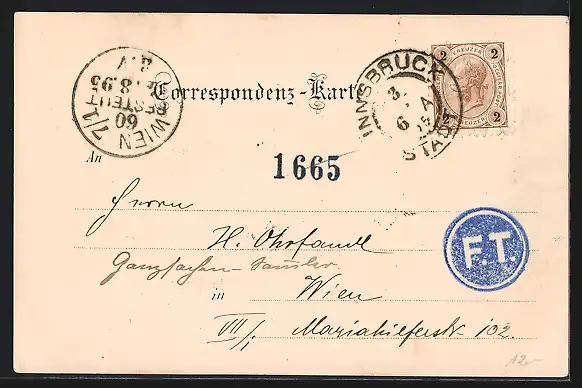 WIEN 7/1
60
BESTELLT
8.95
Correspondenz-Karte
INNSBRUCK
STADT
3
6
KREUZER
2 2
2 2
An
1665
Herrn
H. Ohrfandl
Ganzsachen-Sammler
F.T.
in Wien
VII/1 Mariahilferstr. 102.
12.-